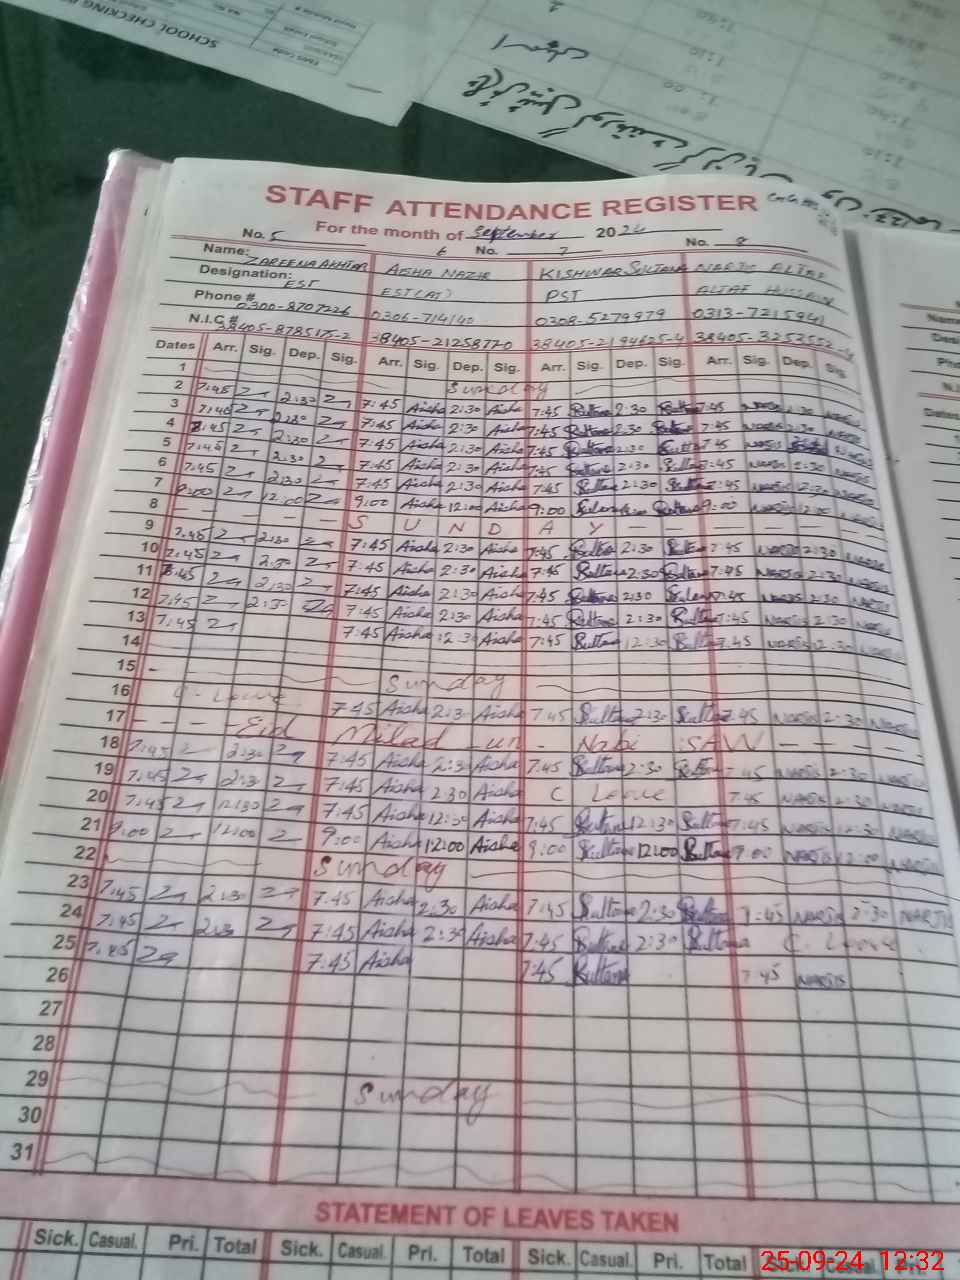 SCHOOL CHECKING
STAFF ATTENDANCE REGISTER
For the month of September 2024
No. 5 6 No. 7 No. 8
Name: ZAREENA AKHTAR AISHA NAZIR KISHWAR SULTANA NARJIS ALTAF
Designation: EST EST(AT) PST ALTAF HUSSAIN
Phone # 0300-8707226 0306-714140 0308-5279979 0313-7215941
N.I.C # 38405-8785175-2 38405-2125877-0 38405-2194625-4 38405-3253552-
Dates Arr. Sig. Dep. Sig. Arr. Sig. Dep. Sig. Arr. Sig. Dep. Sig. Arr. Sig. Dep. Sig.
1 Sunday
2 7:45 2:30 7:45 Aisha 2:30 Aisha 7:45 Sultana 2:30 Sultana 7:45 NARJIS 2:30 NARJIS
3 7:45 2:30 7:45 Aisha 2:30 Aisha 7:45 Sultana 2:30 Sultana 7:45 NARJIS 2:30 NARJIS
4 7:45 2:30 7:45 Aisha 2:30 Aisha 7:45 Sultana 2:30 Sultana 7:45 NARJIS
5 7:45 2:30 7:45 Aisha 2:30 Aisha 7:45 Sultana 2:30 Sultana 7:45 NARJIS 2:30 NARJIS
6 7:45 2:30 7:45 Aisha 2:30 Aisha 7:45 Sultana 2:30 Sultana 7:45 NARJIS 12:30 NARJIS
7 9:00 12:00 9:00 Aisha 12:00 Aisha 9:00 Sultana 9:00 NARJIS 12:00 NARJIS
8 — — — — S U N D A Y — — — — —
9 7:45 2:30 7:45 Aisha 2:30 Aisha 7:45 Sultana 2:30 Sultana 7:45 NARJIS 2:30 NARJIS
10 7:45 2:30 7:45 Aisha 2:30 Aisha 7:45 Sultana 2:30 Sultana 7:45 NARJIS 2:30 NARJIS
11 7:45 2:30 7:45 Aisha 2:30 Aisha 7:45 Sultana 2:30 Sultana 7:45 NARJIS 2:30 NARJIS
12 7:45 2:30 7:45 Aisha 2:30 Aisha 7:45 Sultana 2:30 Sultana 7:45 NARJIS 2:30 NARJIS
13 7:45 7:45 Aisha 12:30 Aisha 7:45 Sultana 12:30 Sultana 7:45 NARJIS 12:30 NARJIS
14
15 Sunday
16 C. Leave 7:45 Aisha 2:30 Aisha 7:45 Sultana 2:30 Sultana 7:45 NARJIS 2:30 NARJIS
17 — — — — Eid Milad - un - Nabi SAW — — — —
18 7:45 2:30 7:45 Aisha 2:30 Aisha 7:45 Sultana 2:30 Sultana 7:45 NARJIS 2:30 NARJIS
19 7:45 2:30 7:45 Aisha 2:30 Aisha C Leave 7:45 NARJIS 2:30 NARJIS
20 7:45 12:30 7:45 Aisha 12:30 Aisha 7:45 Sultana 12:30 Sultana 7:45 NARJIS 12:30 NARJIS
21 9:00 12:00 9:00 Aisha 12:00 Aisha 9:00 Sultana 12:00 Sultana 9:00 NARJIS 12:00 NARJIS
22 Sunday
23 7:45 2:30 7:45 Aisha 2:30 Aisha 7:45 Sultana 2:30 Sultana 7:45 NARJIS 2:30 NARJIS
24 7:45 2:30 7:45 Aisha 2:30 Aisha 7:45 Sultana 2:30 Sultana C. Leave
25 7:45 7:45 Aisha 7:45 Sultana 7:45 NARJIS
26
27
28
29 Sunday
30
31
STATEMENT OF LEAVES TAKEN
Sick. Casual. Pri. Total Sick. Casual. Pri. Total Sick. Casual. Pri. Total Sick. Casual. Pri.
25-09-24 12:32